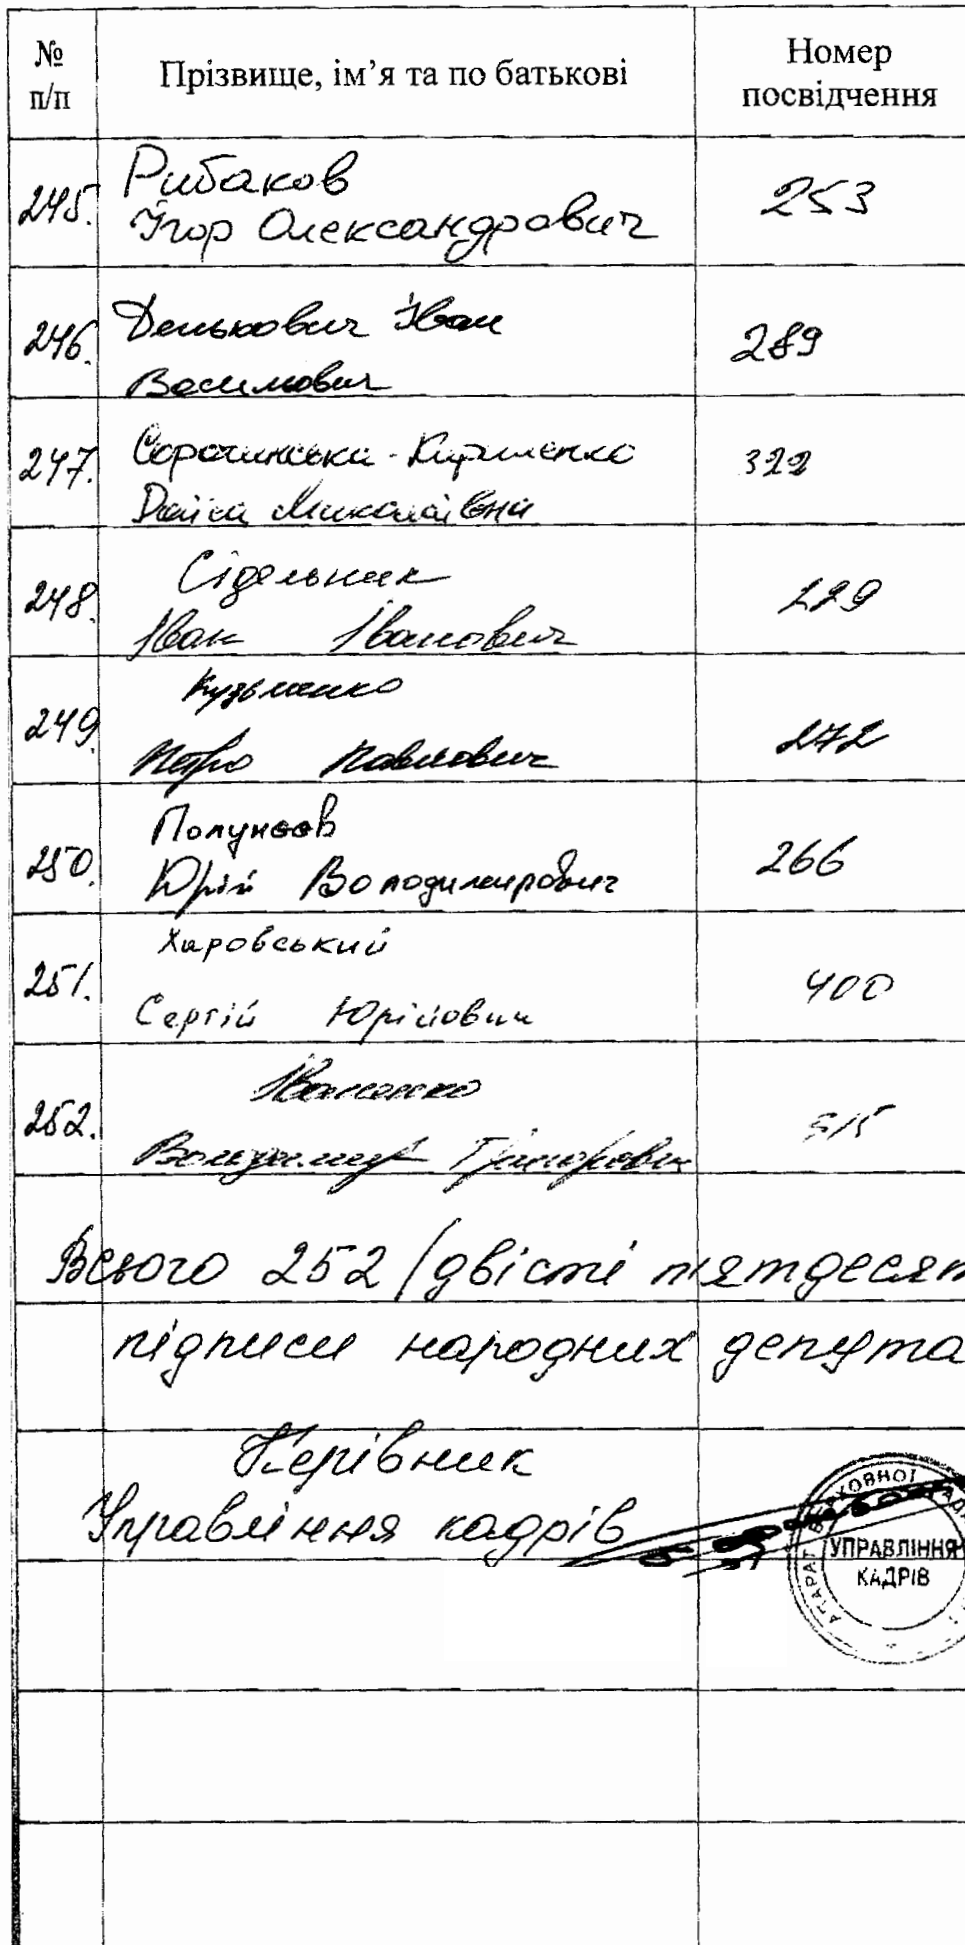 № п/п
Прізвище, ім’я та по батькові
Номер посвідчення
245. Рибаков
Ігор Олександрович
253
246. Денькович Іван
Васильович
289
247. Сорочинська-Кириленко
Раїса Миколаївна
322
248. Сідельник
Іван Іванович
229
249. Кузьменко
Петро Павлович
272
250. Полунєєв
Юрій Володимирович
266
251. Харовський
Сергій Юрійович
400
252. Іваненко
Володимир Григорович
Всього 252 (двісті пятдесят
підписи народних депута
Керівник
Управління кадрів
АПАРАТ ВЕРХОВНОЇ
УПРАВЛІННЯ
КАДРІВ